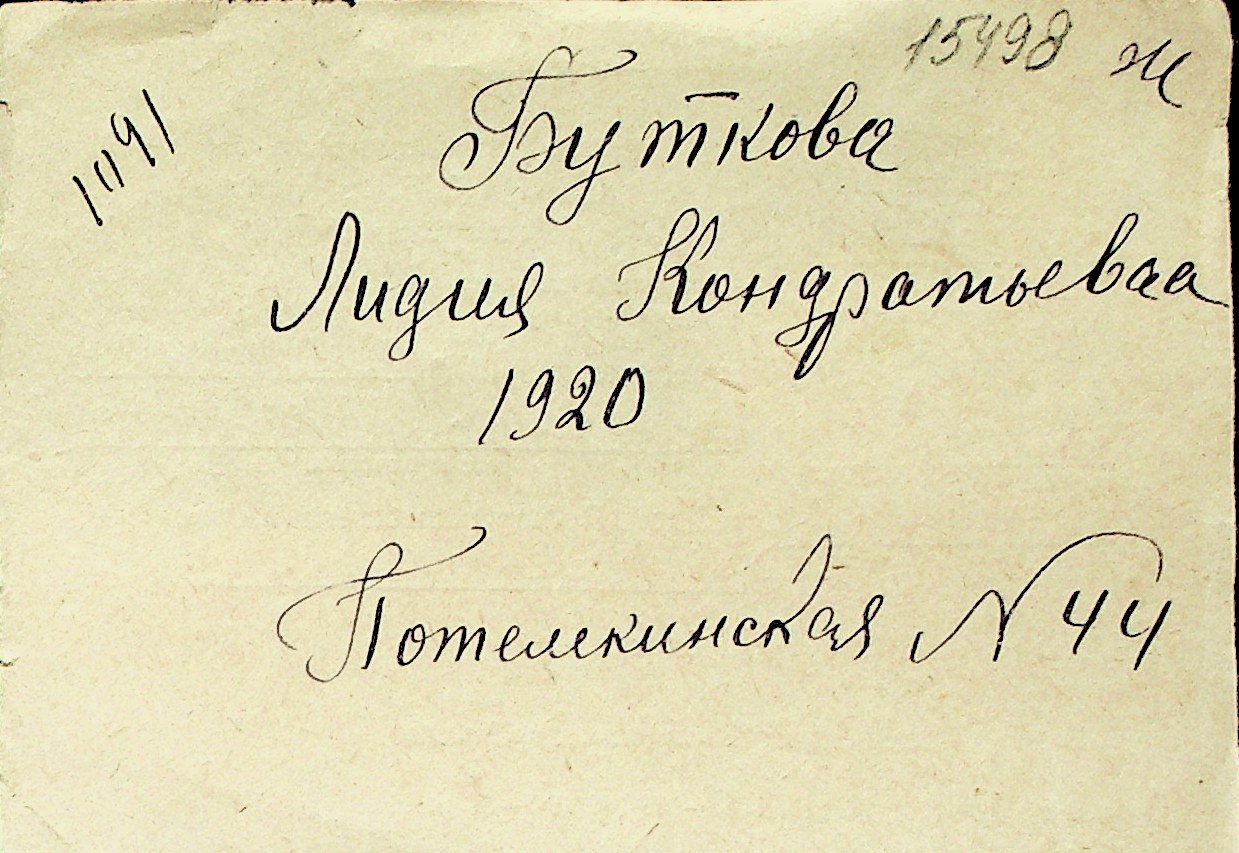 15498 ж
11191
Буткова
Лидия Кондратьевна
1920
Потемкинская N 44